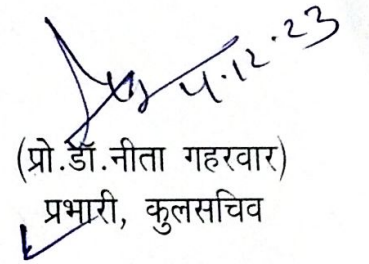 4.12.23
(प्रो.डॉ.नीता गहरवार)
प्रभारी, कुलसचिव